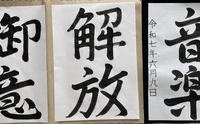 音楽
令和七年六月九日
解放
御意